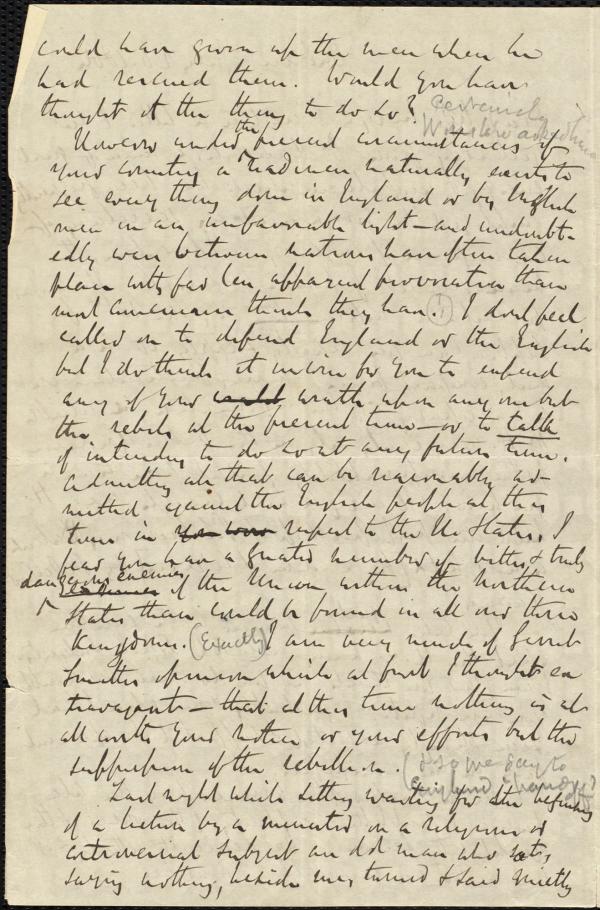 could have given up the men when he
had rescued them. Would you have
thought it the thing to do so? Certainly
However under the present circumstances of
your country a Yankee naturally seems to
see every thing done in England or by English
men in an unfavorable light — and undoubt-
edly wars between nations have often taken
place with far less apparent provocation than
most Americans think they have. (!) I don't feel
called on to defend England or the English
but I do think it unwise for you to expend
any of your wrath upon any one but
the rebels at the present time — or to talk
of intending to do so at any future time.
Admitting all that can be reasonably ad-
mitted against the English people at this
time in respect to the U. States, I
fear you have a greater number of bitter & truly
dangerous enemies of the Union within the Northern
States than could be found in all our three
Kingdoms. (Exactly) I am very much of Gerrit
Smith's opinion which at first I thought ex
travagant — that at this time nothing is at
all worth your notice or your efforts but the
suppression of the rebellion. (& so we say to
England & Europe)
Last night while sitting waiting for the beginning
of a lecture by a minister on a religious or
controversial subject an old man who sat,
saying nothing, beside me, turned & said quietly